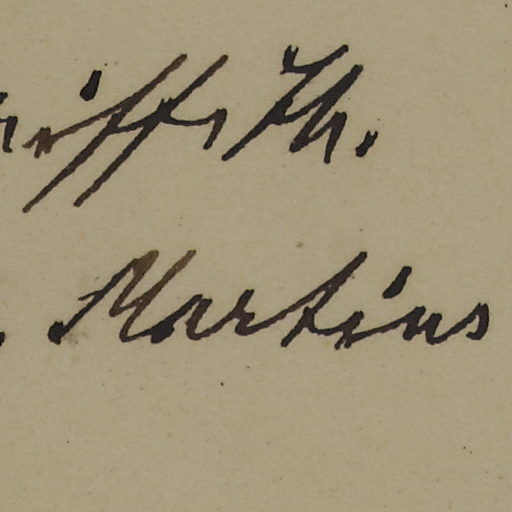 riffith.
. Martius